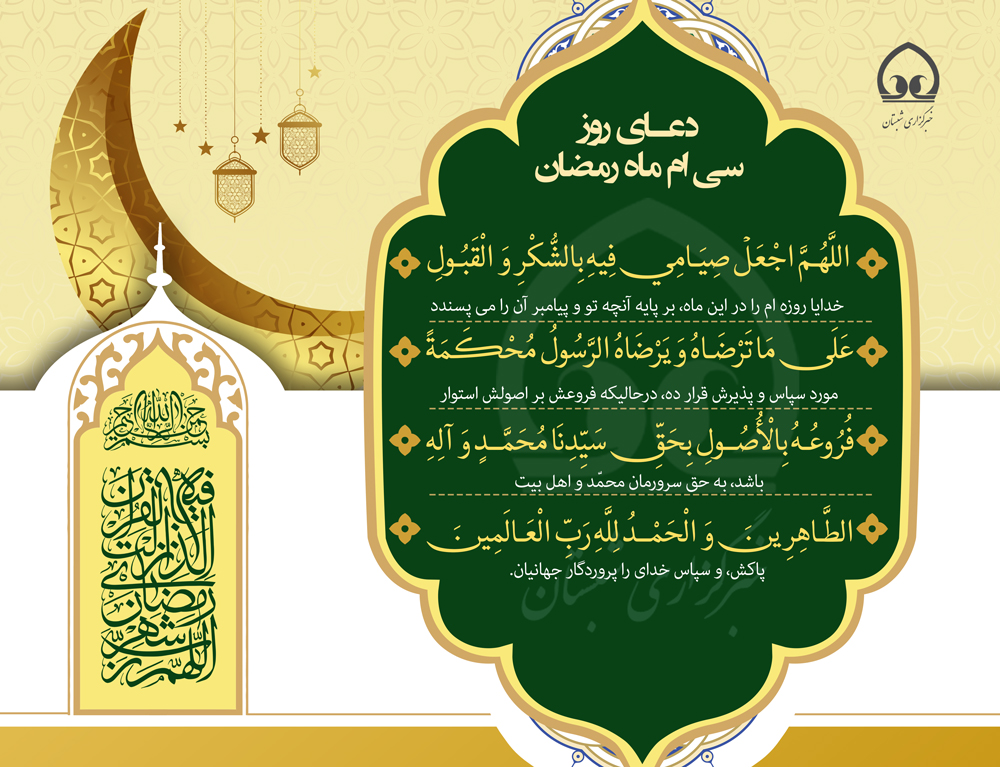 دعای روز
سی ام ماه رمضان
خبرگزاری شبستان
اللَّهُمَّ اجْعَلْ صِيَامِي فِيهِ بِالشُّكْرِ وَ الْقَبُولِ
خدایا روزه ام را در این ماه، بر پایه آنچه تو و پیامبر آن را می پسندد
عَلَى مَا تَرْضَاهُ وَ يَرْضَاهُ الرَّسُولُ مُحْكَمَةً
مورد سپاس و پذیرش قرار ده، درحالیکه فروعش بر اصولش استوار
فُرُوعُهُ بِالْأُصُولِ بِحَقِّ سَيِّدِنَا مُحَمَّدٍ وَ آلِهِ
باشد، به حق سرورمان محمّد و اهل بیت
الطَّاهِرِينَ وَ الْحَمْدُ لِلَّهِ رَبِّ الْعَالَمِينَ
پاکش، و سپاس خدای را پروردگار جهانیان.
خبرگزاری شبستان
بسم الله الرحمن الرحیم
اللهم رب شهر رمضان الذی انزلت فیه القرآن